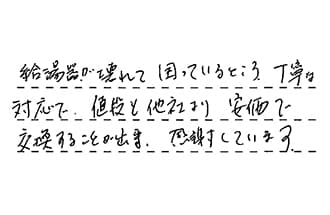 給湯器が壊れて困っているところ、丁寧な
対応で、値段も他社より安価で
交換することが出来、感謝しています。